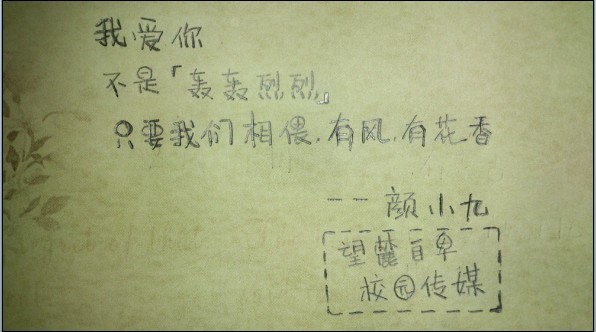 我爱你
不是「轰轰烈烈」
只要我们相偎.有风.有花香
——颜小九
望麓自卑
校园传媒